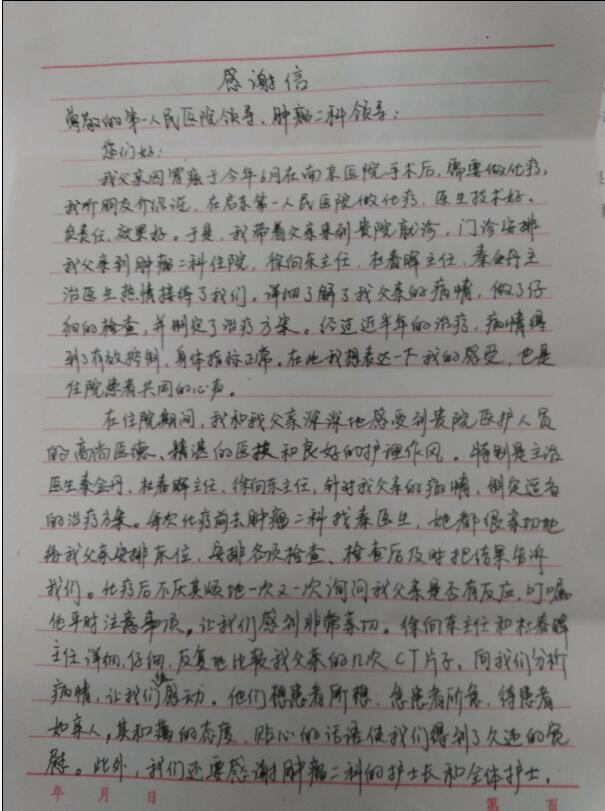 感谢信
尊敬的第一人民医院领导、肿瘤二科领导：
您们好：
我父亲因胃癌于今年6月在南京医院手术后，需要做化疗，
我听朋友介绍说，在启东第一人民医院做化疗，医生技术好，
负责任，效果好。于是，我带着父亲来到贵院就诊，门诊安排
我父亲到肿瘤二科住院，徐向东主任、杜春晖主任、秦金丹主
治医生热情接待了我们。详细了解了我父亲的病情，做了仔
细的检查，并制定了治疗方案。经过近半年的治疗，病情得
到了有效控制，身体指标正常。在此我想表达一下我的感受，也是
住院患者共同的心声。
在住院期间，我和我父亲深深地感受到贵院医护人员
的高尚医德、精湛的医技和良好的护理作风。特别是主治
医生秦金丹、杜春晖主任、徐向东主任，针对我父亲的病情，制定适合
的治疗方案。每次化疗前去肿瘤二科找秦医生，她都很亲切地
给我父亲安排床位，安排各项检查、检查后及时把结果告诉
我们。化疗后不厌其烦地一次又一次询问我父亲是否有反应，叮嘱
他平时注意事项，让我们感到非常亲切。徐向东主任和杜春晖
主任详细、仔细、反复地比较我父亲的几次CT片子，向我们分析
病情，让我们感动。他们想患者所想，急患者所急，待患者
如亲人，其和蔼的态度、贴心的话语使我们得到了久违的宽
慰。此外，我们还要感谢肿瘤二科的护士长和全体护士，
年 月 日 第 页